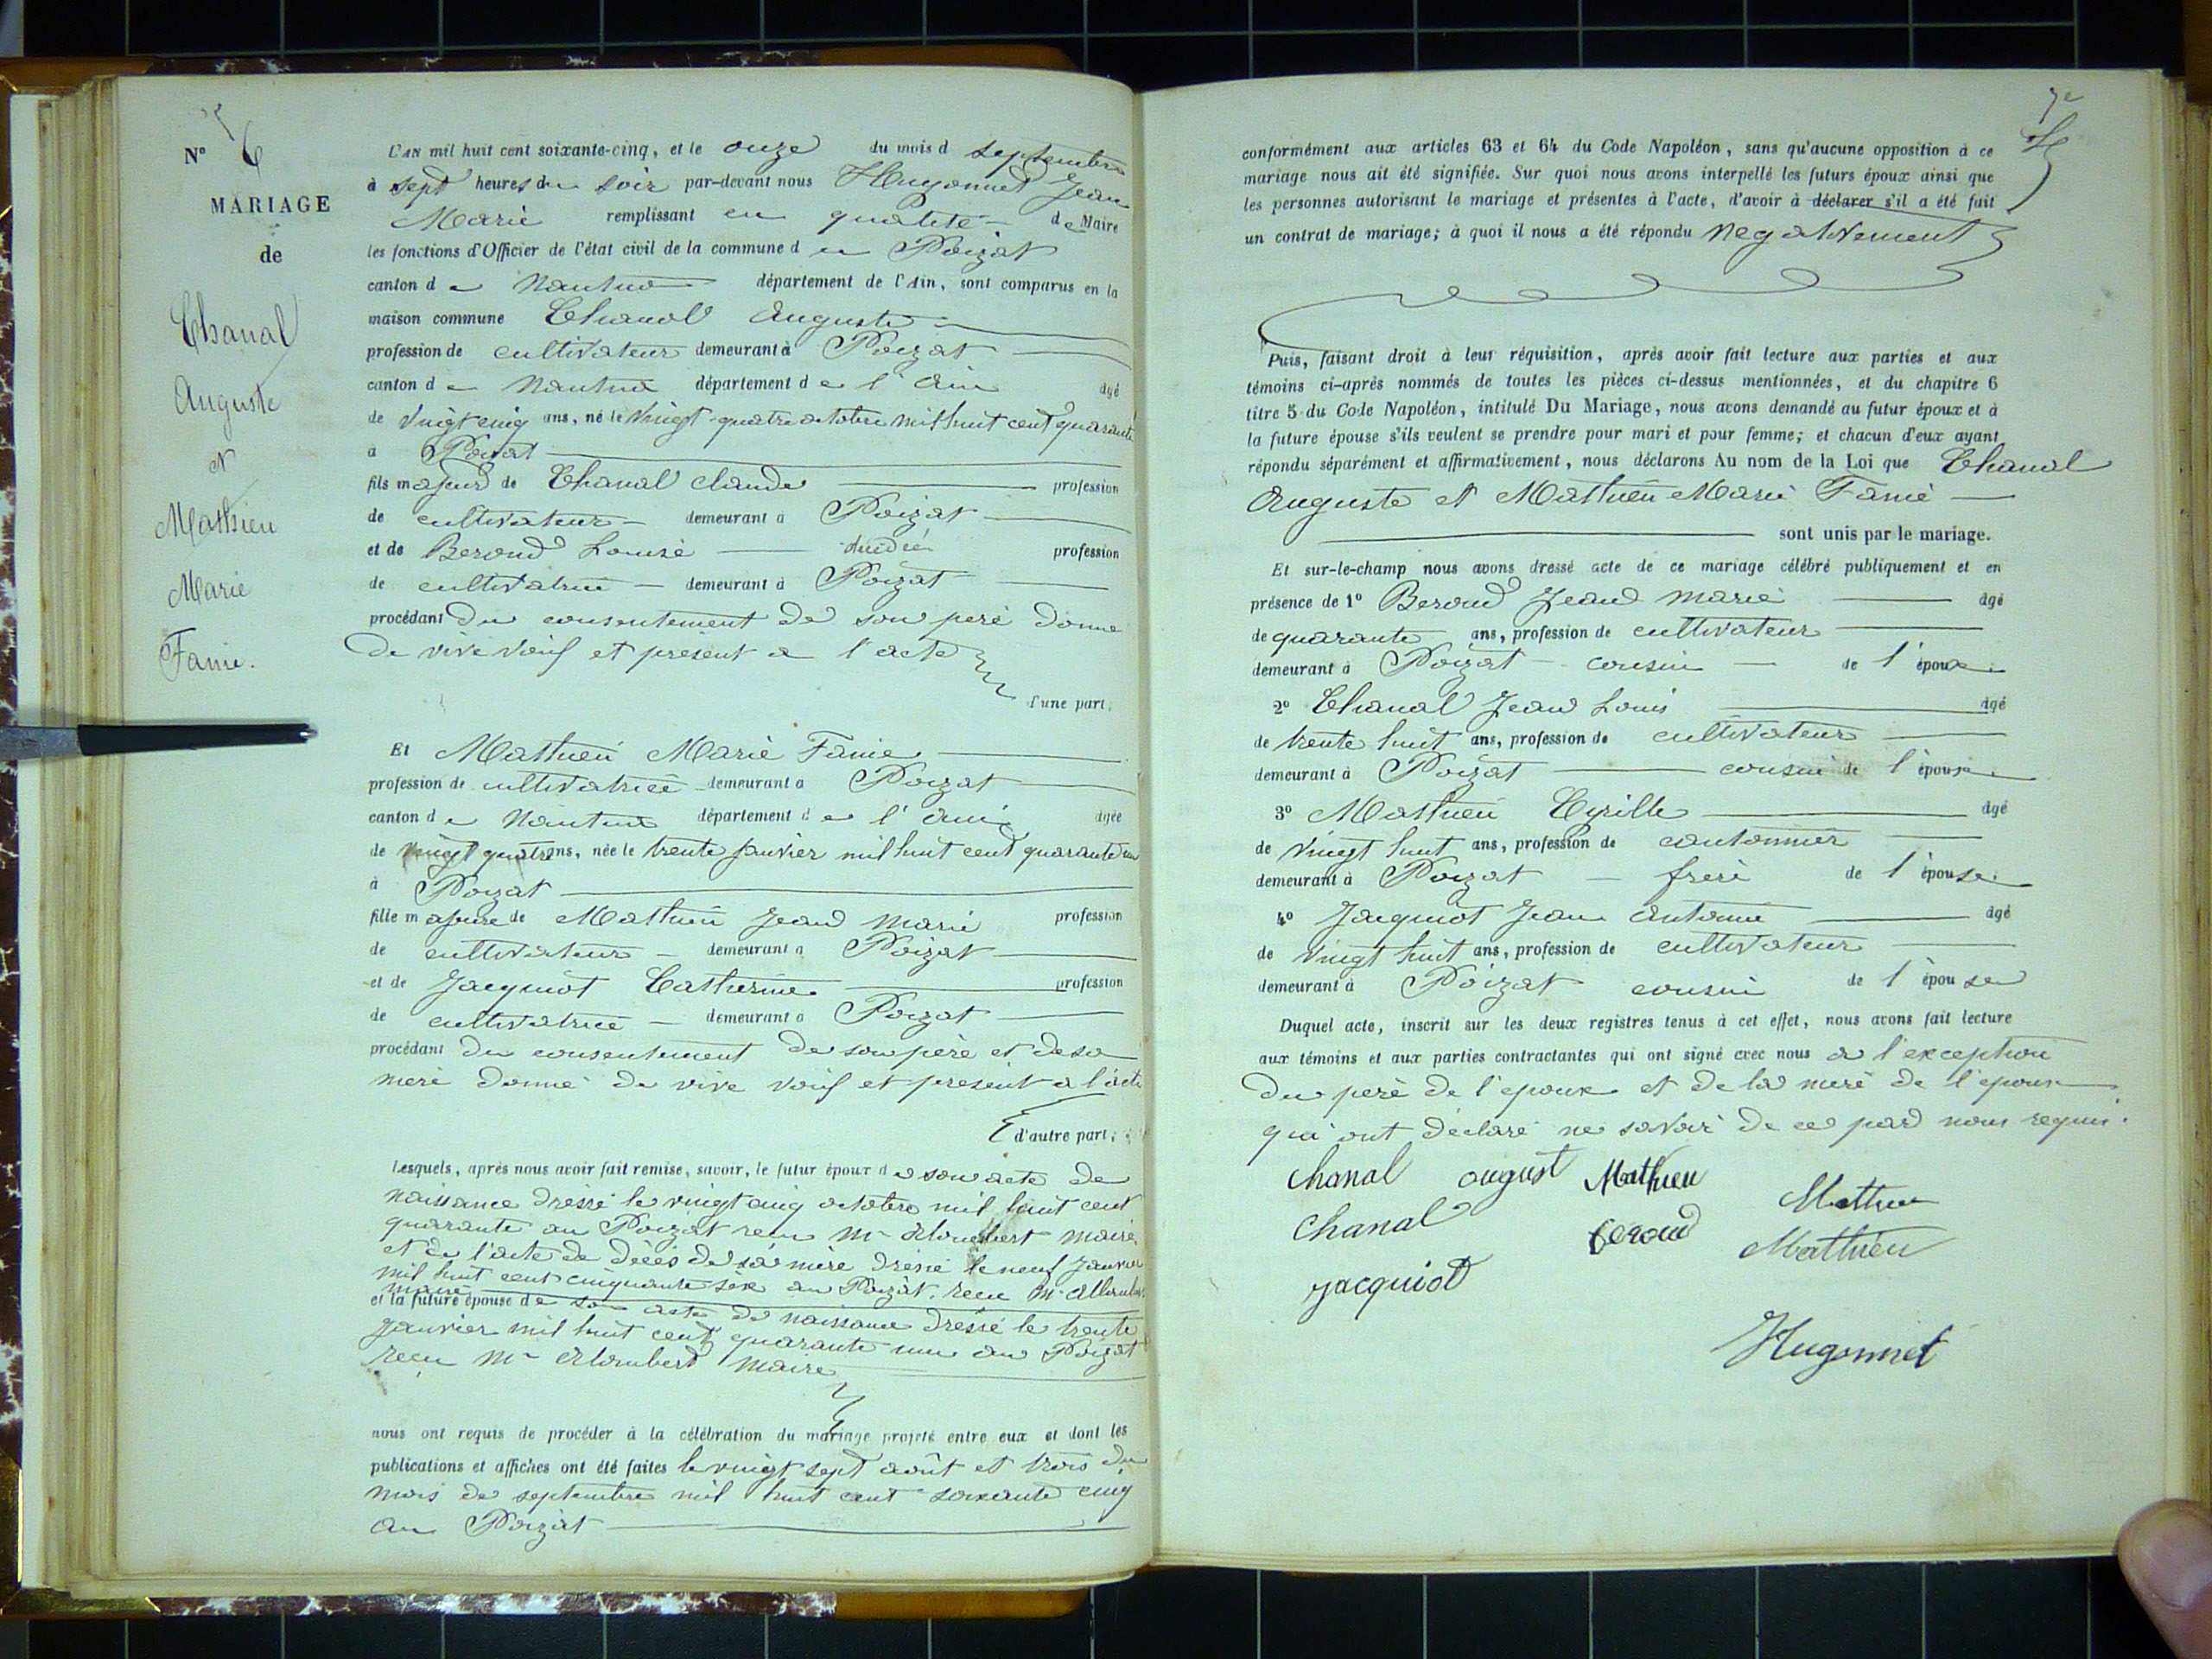 N° 6
MARIAGE
de
Chanal
Auguste
et
Mathieu
Marie
Fanie.
L'AN mil huit cent soixante-cinq, et le onze du mois d septembre
à sept heures du soir par-devant nous Hugonnet Jean
Marie remplissant en qualité de Maire
les fonctions d'Officier de l'état civil de la commune d u Poizat
canton de Nantua département de l'Ain, sont comparus en la
maison commune Chanal Auguste
profession de cultivateur demeurant à Poizat
canton de Nantua département de l'Ain âgé
de vingt cinq ans, né le vingt-quatre octobre mil huit cent quarante
à Poizat
fils majeur de Chanal Claude profession
de cultivateur demeurant à Poizat
et de Beroud Louise profession
de cultivatrice demeurant à Poizat
procédant du consentement de son père donné
de vive voix et présent a l'acte
d'une part.
Et Mathieu Marie Fanie
profession de cultivatrice demeurant à Poizat
canton de Nantua département de l'Ain âgée
de vingt quatre ans, née le trente janvier mil huit cent quarante un
à Poizat
fille majeure de Mathieu Jean Marie profession
de cultivateur demeurant à Poizat
et de Jacquiot Catherine profession
de cultivatrice demeurant à Poizat
procédant du consentement de son père et de sa
mère donné de vive voix et présent a l'acte
d'autre part;
Lesquels, après nous avoir fait remise, savoir, le futur époux de son acte de
naissance dressé le vingt cinq octobre mil huit cent
quarante au Poizat reçu Mr Alombert maire
et de l'acte de décès de sa mère dressé le neuf janvier
mil huit cent cinquante six au Poizat. reçu Mr Allombert
maire
et la future épouse de son acte de naissance dressé le trente
janvier mil huit cent quarante un au Poizat
reçu Mr Alombert maire
nous ont requis de procéder à la célébration du mariage projeté entre eux et dont les
publications et affiches ont été faites le vingt sept août et trois du
mois de septembre mil huit cent soixante cinq
au Poizat
7e
conformément aux articles 63 et 64 du Code Napoléon, sans qu'aucune opposition à ce
mariage nous ait été signifiée. Sur quoi nous avons interpellé les futurs époux ainsi que
les personnes autorisant le mariage et présentes à l'acte, d'avoir à déclarer s'il a été fait
un contrat de mariage; à quoi il nous a été répondu négativement
Puis, faisant droit à leur réquisition, après avoir fait lecture aux parties et aux
témoins ci-après nommés de toutes les pièces ci-dessus mentionnées, et du chapitre 6
titre 5 du Code Napoléon, intitulé Du Mariage, nous avons demandé au futur époux et à
la future épouse s'ils veulent se prendre pour mari et pour femme; et chacun d'eux ayant
répondu séparément et affirmativement, nous déclarons Au nom de la Loi que Chanal
Auguste et Mathieu Marie Fanie
sont unis par le mariage.
Et sur-le-champ nous avons dressé acte de ce mariage célébré publiquement et en
présence de 1° Beroud Jean Marie âgé
de quarante ans, profession de cultivateur
demeurant à Poizat cousin de l'époux
2° Chanal Jean Louis âgé
de trente huit ans, profession de cultivateur
demeurant à Poizat cousin de l'épouse
3° Mathieu Cyrille âgé
de vingt huit ans, profession de cantonnier
demeurant à Poizat frère de l'épouse
4° Jacquiot Jean Antoine âgé
de vingt huit ans, profession de cultivateur
demeurant à Poizat cousin de l'épouse
Duquel acte, inscrit sur les deux registres tenus à cet effet, nous avons fait lecture
aux témoins et aux parties contractantes qui ont signé avec nous a l'exception
du père de l'époux et de la mère de l'épouse
qui ont déclaré ne savoir de ce par nous requis.
Chanal august Mathieu Mathieu
Chanal Beroud Mathieu
Jacquiot
Hugonnet